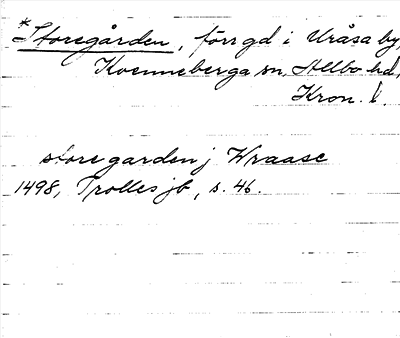 *Storegården, förr gd i Uråsa by,
Kvenneberga sn, Allbo hd,
Kron. l.
storegarden j Wraase
1498, Trolles jb, s. 46.